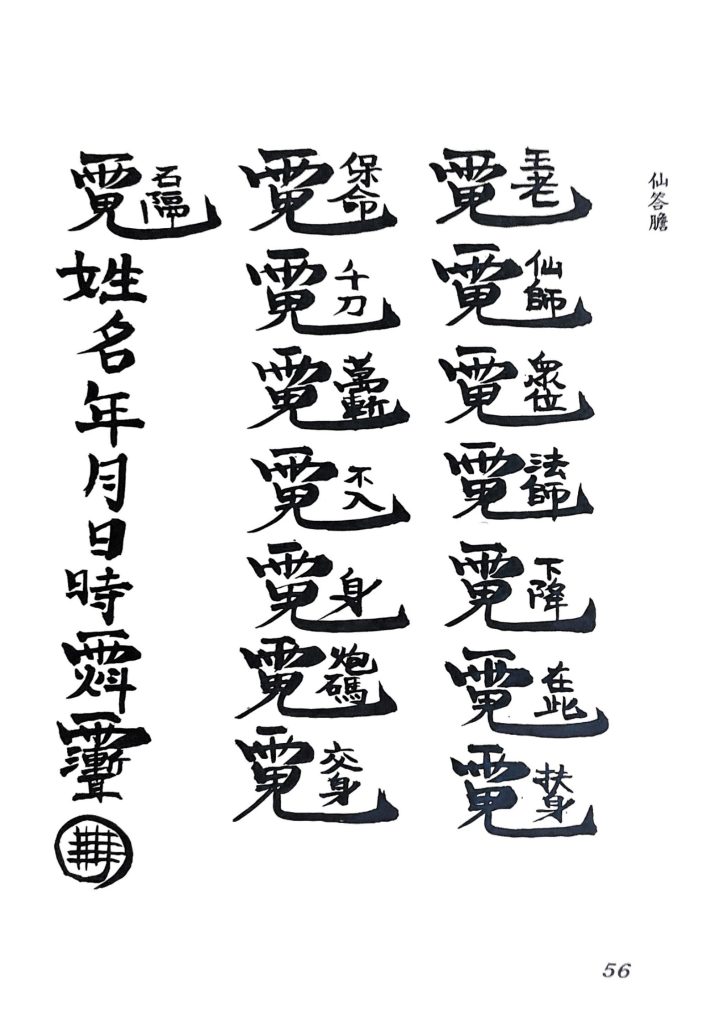 仙答膽
王老仙師眾位法師下降在此扶身
保命千刀萬斬不入身炮碼交身
石隔姓名年月日時
56